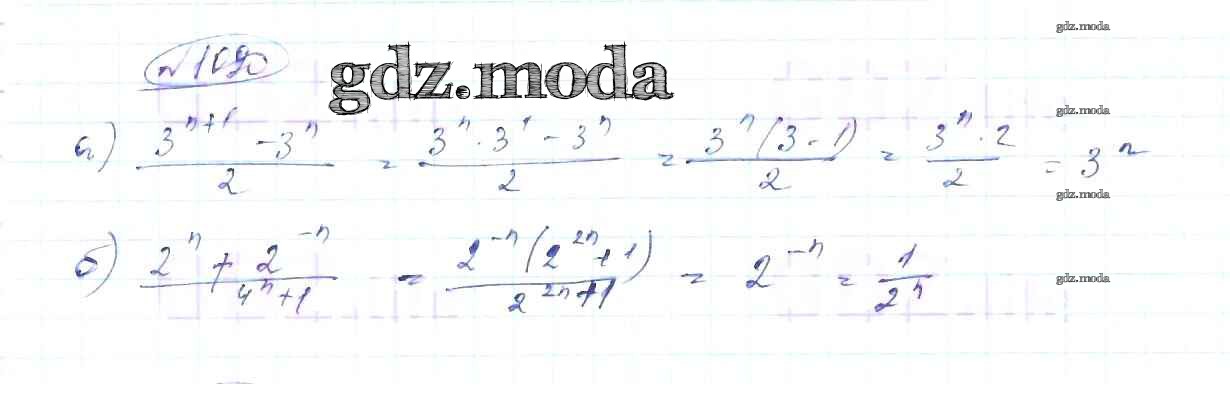 gdz.moda
№ 1090
gdz.moda
gdz.moda
а) (3^(n+1) - 3^n)/2 = (3^n · 3^1 - 3^n)/2 = (3^n (3 - 1))/2 = (3^n · 2)/2 = 3^n
gdz.moda
б) (2^n + 2^(-n))/(4^n + 1) = (2^(-n) (2^(2n) + 1))/(2^(2n) + 1) = 2^(-n) = 1/2^n
gdz.moda